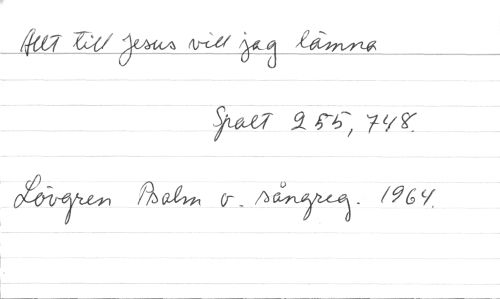 Allt till Jesus vill jag lämna
Spalt 255, 748.
Lövgren Psalm o. sångreg. 1964.